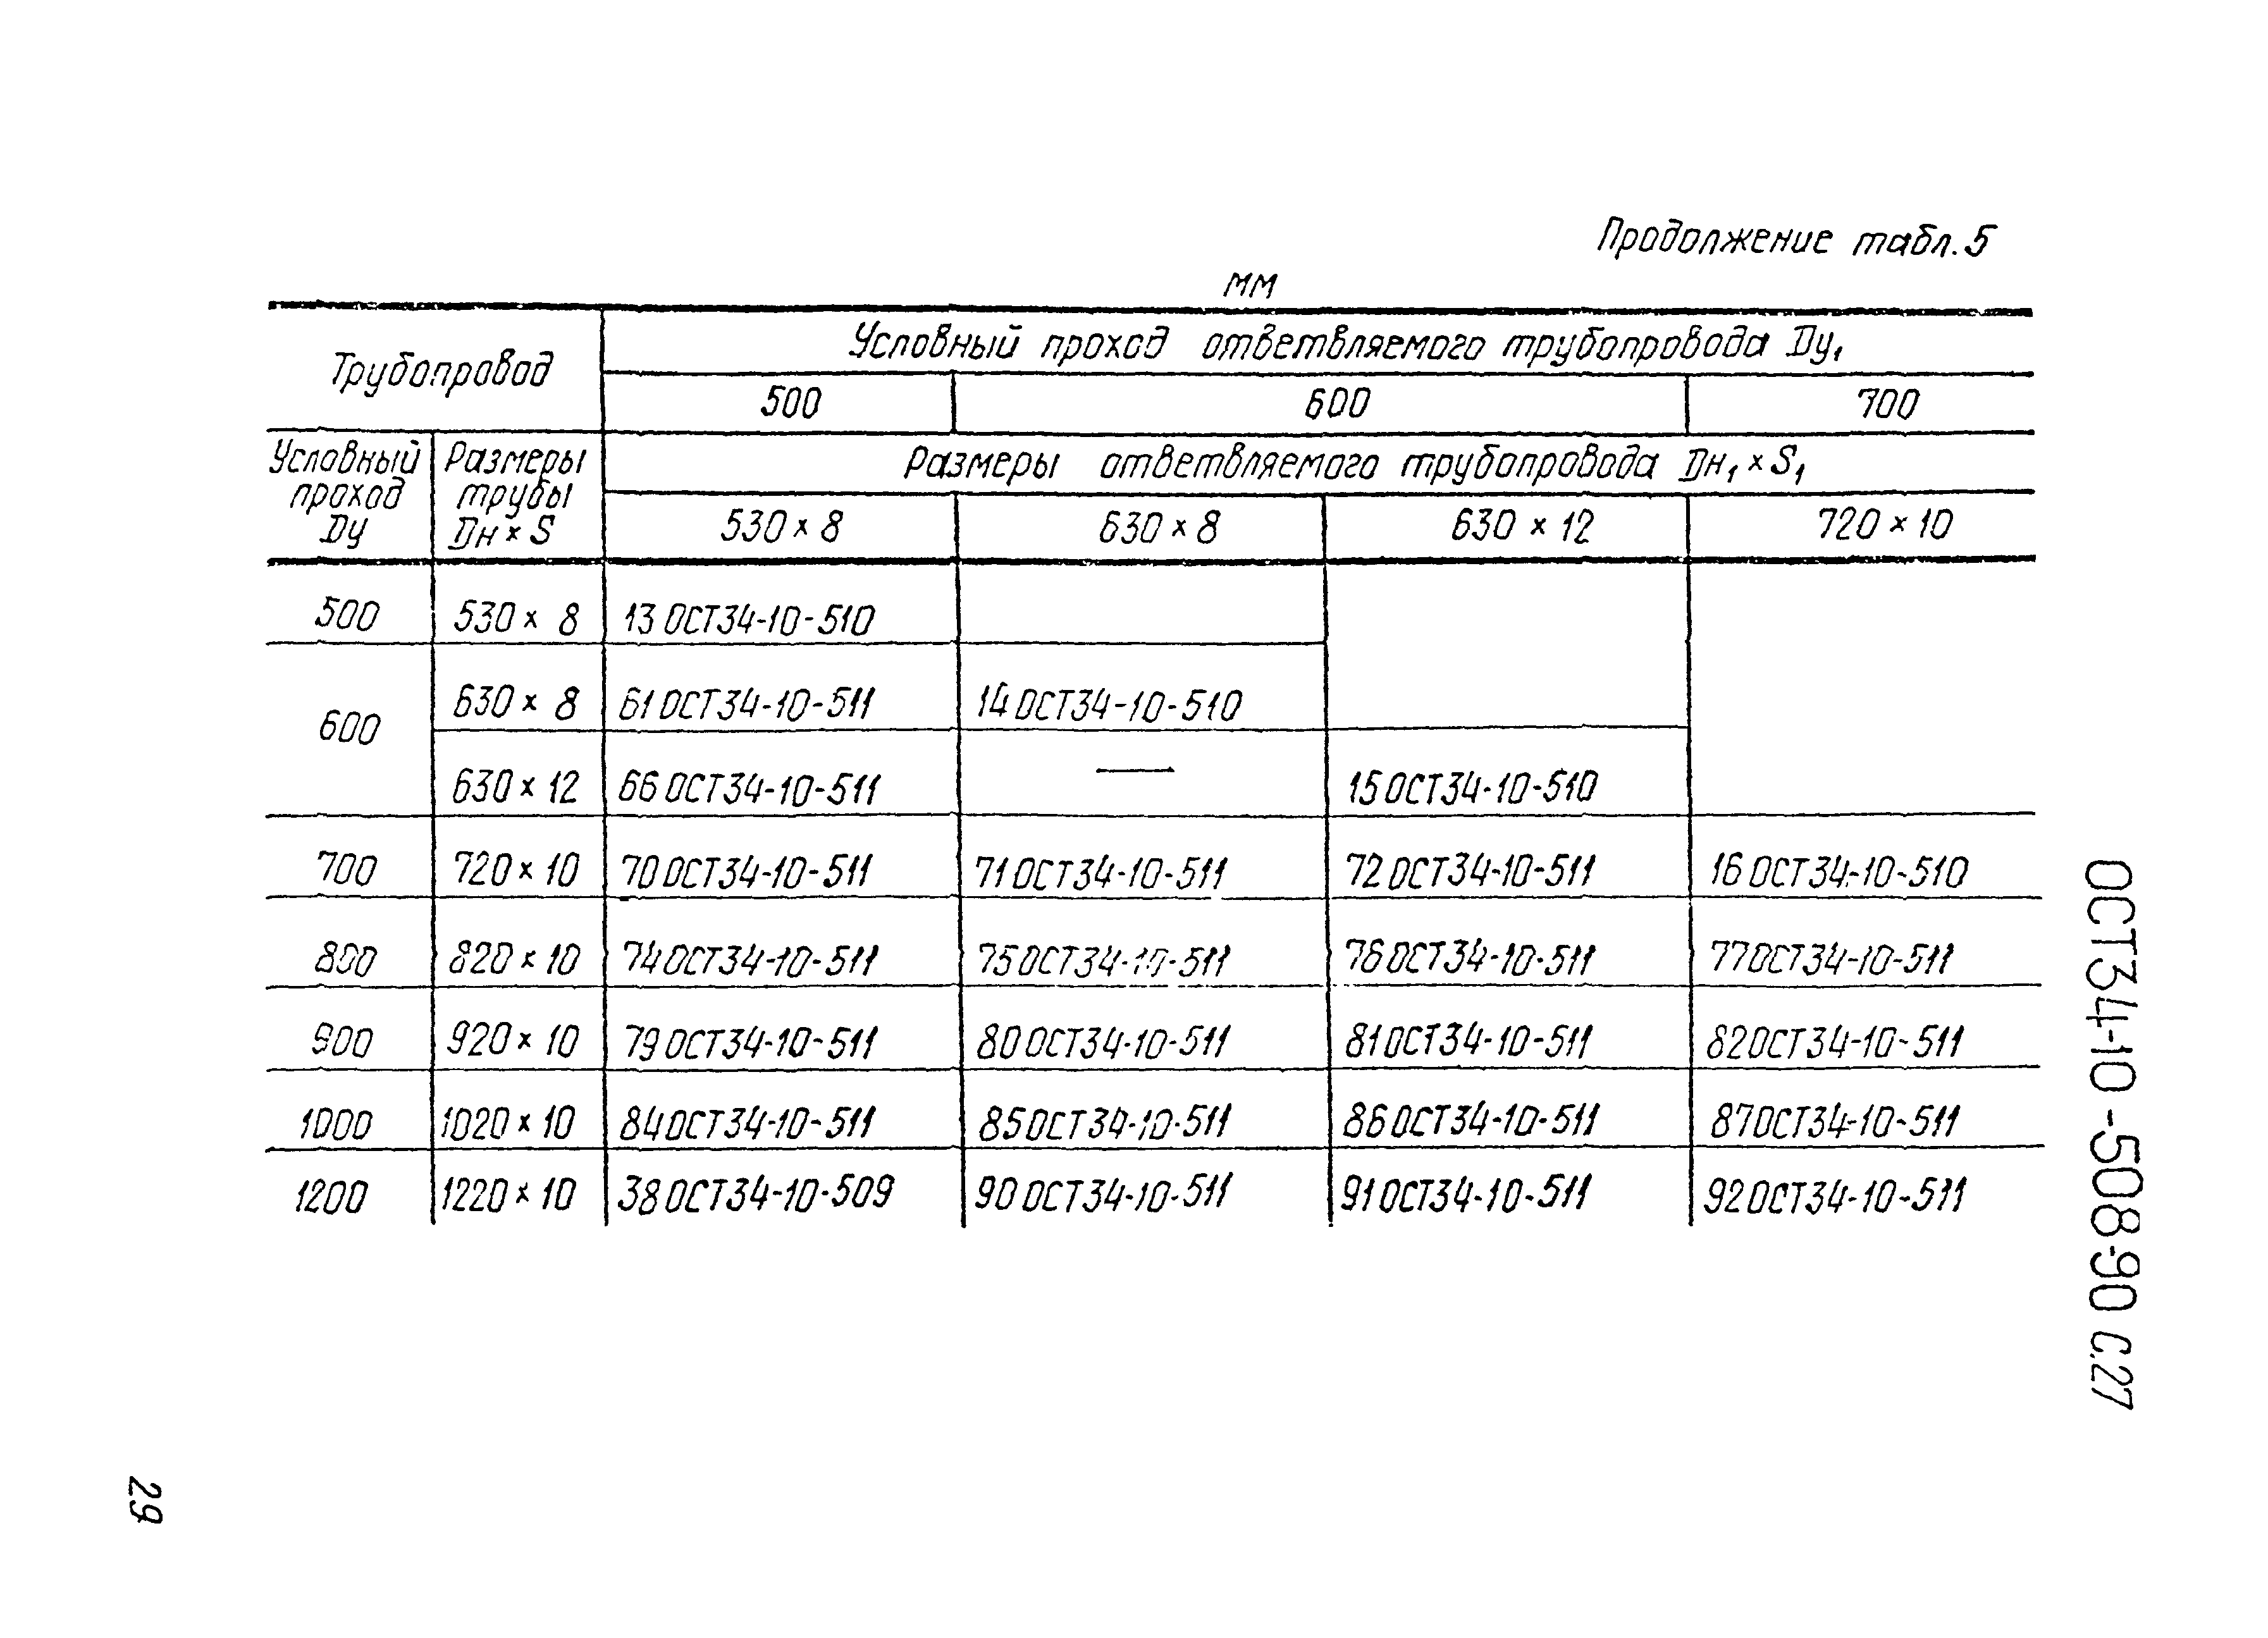 Продолжение табл. 5
мм
Трубопровод
Условный проход ответвляемого трубопровода Dу₁
500 600 700
Условный проход Dу
Размеры трубы Dн × S
Размеры ответвляемого трубопровода Dн₁ × S₁
530 × 8 630 × 8 630 × 12 720 × 10
500 530 × 8 13 ОСТ34-10-510
600 630 × 8 61 ОСТ34-10-511 14 ОСТ34-10-510
630 × 12 66 ОСТ34-10-511 — 15 ОСТ34-10-510
700 720 × 10 70 ОСТ34-10-511 71 ОСТ34-10-511 72 ОСТ34-10-511 16 ОСТ34-10-510
800 820 × 10 74 ОСТ34-10-511 75 ОСТ34-10-511 76 ОСТ34-10-511 77 ОСТ34-10-511
900 920 × 10 79 ОСТ34-10-511 80 ОСТ34-10-511 81 ОСТ34-10-511 82 ОСТ34-10-511
1000 1020 × 10 84 ОСТ34-10-511 85 ОСТ34-10-511 86 ОСТ34-10-511 87 ОСТ34-10-511
1200 1220 × 10 38 ОСТ34-10-509 90 ОСТ34-10-511 91 ОСТ34-10-511 92 ОСТ34-10-511
ОСТ34-10-508-90 С.27
29